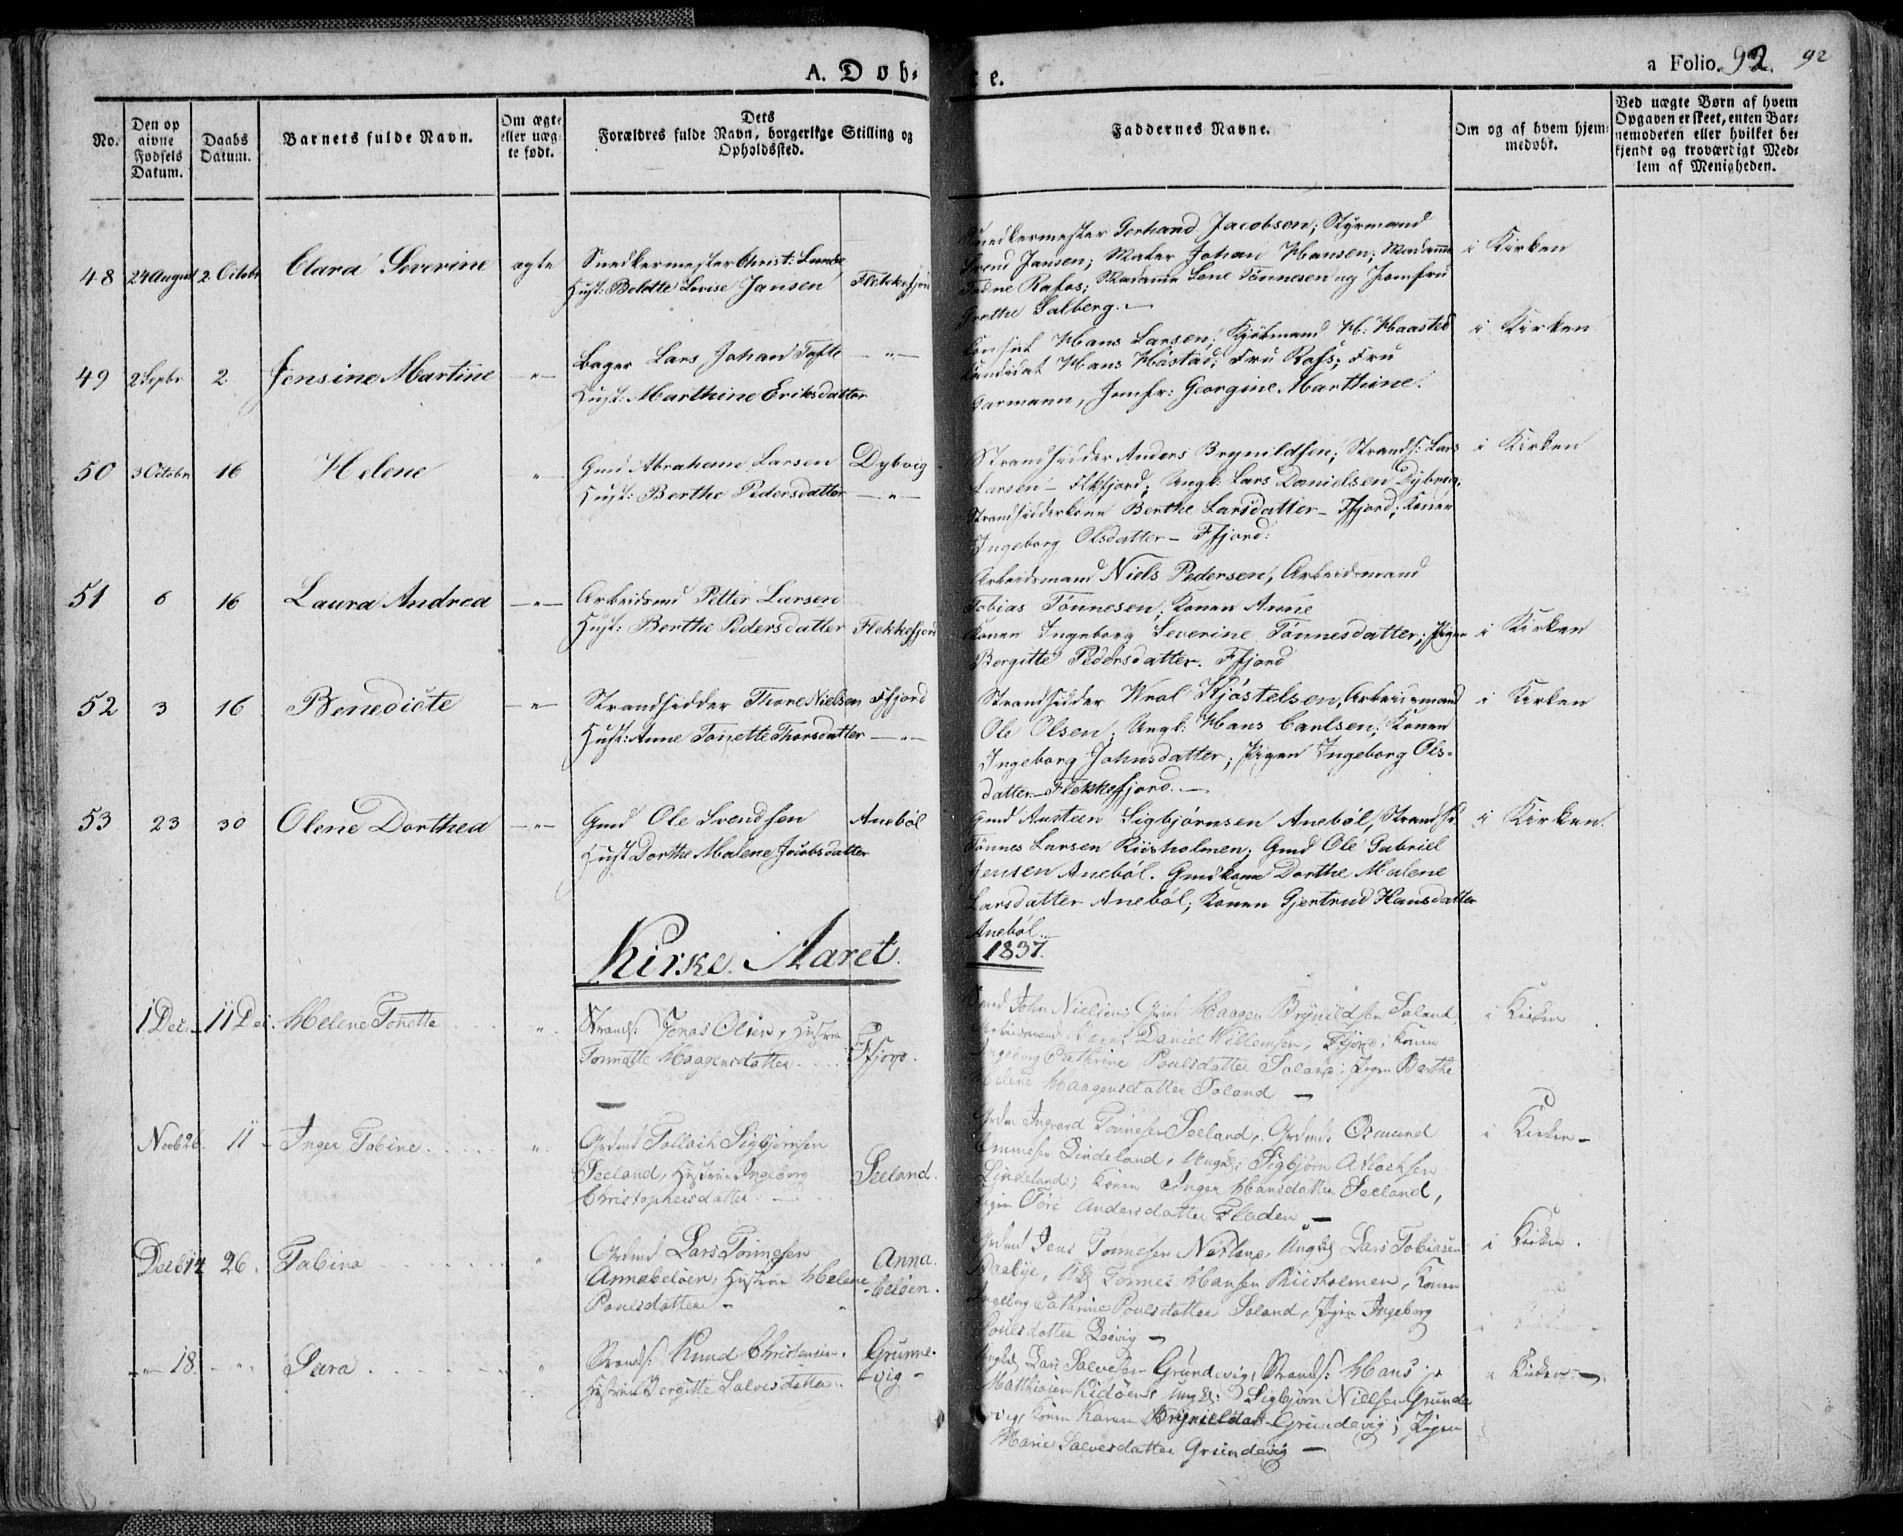 A. Døb-
te.
a Folio. 92. 92
No.
Den op
givne
Fødsels
Datum.
Daabs
Datum.
Barnets fulde Navn.
Om ægte
eller uæg-
te født.
Dets
Forældres fulde Navn, borgerlige Stilling og
Opholdssted.
Faddernes Navne.
Om og af hvem hjem-
medøbt.
Ved uægte Børn af hvem
Opgaven er skeet, enten Bar-
nemoderen eller hvilket be-
kjendt og troværdigt Med-
lem af Menigheden.
48 24 August 2 Octobr Clara Severine ægte
Snedkermester Christ:
Hust: Lovise Jansen Flekkefjord
Snedkermester Gerhard Jacobsen; Styrmand
Svend Jansen; Maler Johan Hansen; Madame
Madame Lene Tønnesen og Jomfru
Grethe Salberg.
i Kirken
49 2 Sepbr 2 Jensine Martine
Bager Lars Johan Tofte
Hust: Marthine Eriksdatter
Hans Larsen; Kjøbmand H: Haastad
Kandidat Hans Håstad; Fru Fru
Garmann, Jomfr: Georgine Marthine.
i Kirken
50 3 Octobr 16 Helene
Gmd Abraham Larsen Dybvig
Hust: Berthe Pedersdatter
Strandsidder Anders Brynildsen; Strands: Lars
Larsen - Flkfjord; Ungk: Lars Danielsen Dybvig;
Strandsidderkone Berthe Larsdatter - Ffjord; Konen
Ingeborg Olsdatter - Ffjord:
i Kirken
51 6 16 Laura Andrea
Arbeidsmd Petter Larsen
Hust: Berthe Pedersdatter Flekkefjord
Arbeidsmand Niels Pedersen, Arbeidsmand
Tobias Tönnesen; Konen Anne
Konen Ingeborg Severine Tönnesdatter; Pigen
Bergitte Pedersdatter. Ffjord
i Kirken
52 3 16 Benedicte
Strandsidder Thore Nielsen Ffjord
Hust: Anne Tonette Thorsdatter
Strandsidder Wral Kjöstelsen, Arbeidsmand
Ole Olsen; Ungk: Hans Carlsen; Konen
Ingeborg Johnsdatter; Pigen Ingeborg Ols-
datter - Flekkefjord.
i Kirken
53 23 30 Olene Dorthea
Gmd Ole Svendsen Aneböl
Hust Dorthe Malene Jacobsdatter
Gmd Austeen Sigbjörnsen Aneböl, Strandsd.
Tönnes Larsen Riisholmen; Gmd Ole Gabriel
Jensen Aneböl. Gmdkone Dorthe Malene
Larsdatter Aneböl; Konen Gjertrud Hansdatter
Aneböl.
i Kirken.
Kirke-Aaret
1837.
1 Dec. 11 Dec. Helene Tonette
Strands: Jonas Olsen, Hustru
Tonnette Haagensdatter Ffjord.
John Nielsen, Haagen Brynildsen Soland,
Daniel Willemsen, Ffjord; Konen
Ingeborg Cathrine Poulsdatter Soland; Pigen Berthe
Helene Haagensdatter Soland
i Kirken
Novb 26 11 Inger Tobine
Grdmd Tollach Sigbjørnsen
Seeland, Hustrue Ingeborg
Christophersdatter Seeland.
Tönnesen Seeland, Grdmd: Osmund
Lindeland, Ungk: Sigbjørn Aslachsen
Lindeland; Konen Inger Hansdatter Seeland,
Pigen Andersdatter Fladen
i Kirken
Decb 14 26. Tobina
Grdmd Lars Tönnesen
Annabeløen, Hustrue Helene
Poulsdatter
Anna-
beløen.
Grdmd Jens Tönnesen Ungk Lars Tobiasen
Tönnes Hansen Riisholmen, Konen
Ingeborg Cathrine Poulsdatter Soland, Pigen Ingeborg
Poulsdatter
i Kirken.
18 Sara
Strands: Knud Christensen.
Hustrue Bergitte Salvesdatter.
Grunne-
vig
Ungk Lars Salvesen Grundevig, Strands: Hans
Matthiasen Ungk: Sigbjørn Nielsen Grunde
vig; Konen Karen Brynildsdat. Grundevig; Pigen
Marie Salvesdatter Grundevig
i Kirken